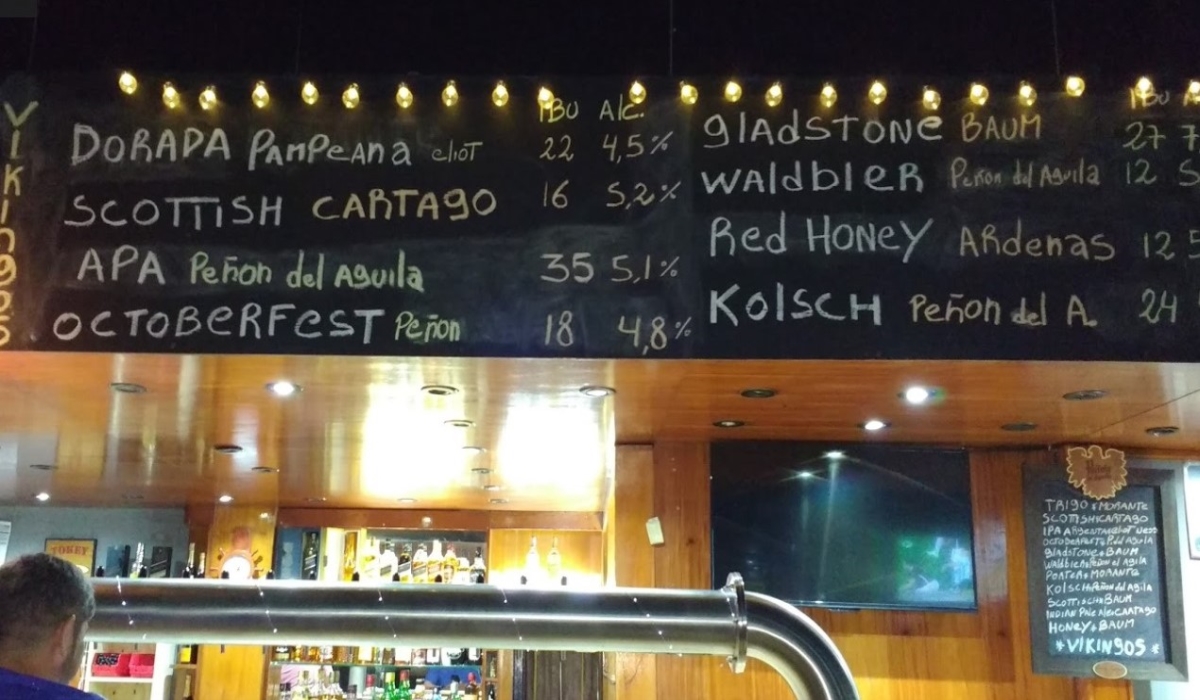 VIKINGOS
IBU Alc.
DORADA PAMPEANA eliot 22 4,5%
SCOTTISH CARTAGO 16 5,2%
APA Peñon del Aguila 35 5,1%
OCTOBERFEST Peñon 18 4,8%
IBU A
GLADSTONE BAUM 27 7
WALDBIER Peñon del Aguila 12 5
Red HONEY ARdenas 12 5
KOLSCH Peñon del A. 24
TOREY
TRIGO MORANTE
SCOTTISH CARTAGO
OCTOBERFEST P.del Aguila
GLADSTONE BAUM
WALDBIER Peñon del Aguila
PORTER MORANTE
KOLSCH Peñon del Aguila
SCOTTISH BAUM
INDIAN Pale Ale CARTAGO
HONEY BAUM
*VIKINGOS*